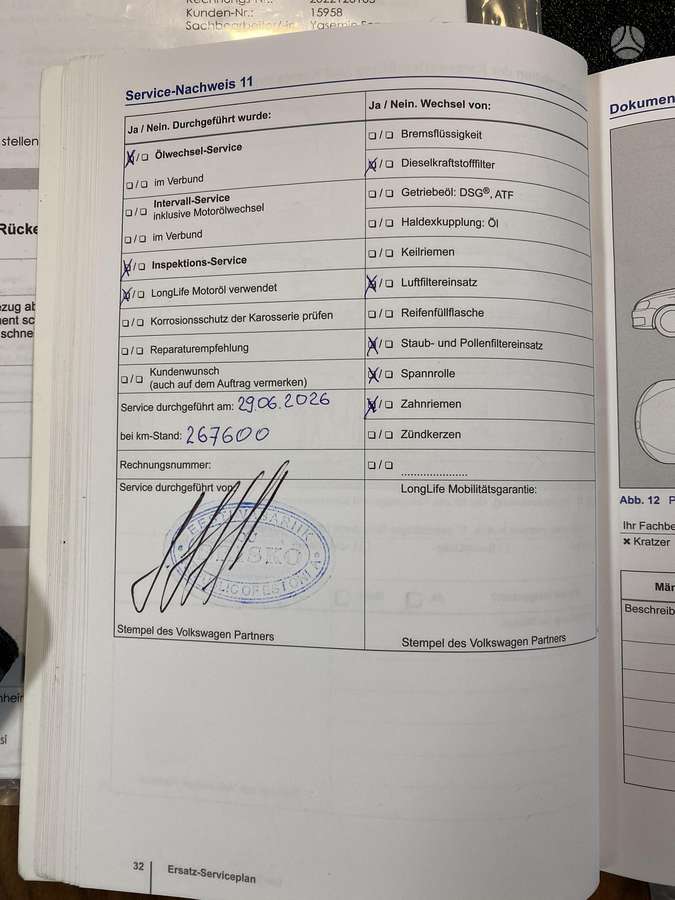 Kunden-Nr.: 15958
Service-Nachweis 11
Ja / Nein. Durchgeführt wurde:
Ölwechsel-Service
im Verbund
Intervall-Service
inklusive Motorölwechsel
im Verbund
Inspektions-Service
LongLife Motoröl verwendet
Korrosionsschutz der Karosserie prüfen
Reparaturempfehlung
Kundenwunsch
(auch auf dem Auftrag vermerken)
Service durchgeführt am: 29.06.2026
bei km-Stand: 267600
Rechnungsnummer:
Service durchgeführt von
Stempel des Volkswagen Partners
Ja / Nein. Wechsel von:
Bremsflüssigkeit
Dieselkraftstofffilter
Getriebeöl: DSG®, ATF
Haldexkupplung: Öl
Keilriemen
Luftfiltereinsatz
Reifenfüllflasche
Staub- und Pollenfiltereinsatz
Spannrolle
Zahnriemen
Zündkerzen
LongLife Mobilitätsgarantie:
Stempel des Volkswagen Partners
32 Ersatz-Serviceplan
stellen
Rücke
Dokumen
Abb. 12 P
Ihr Fachbe
✖ Kratzer
Män
Beschreib